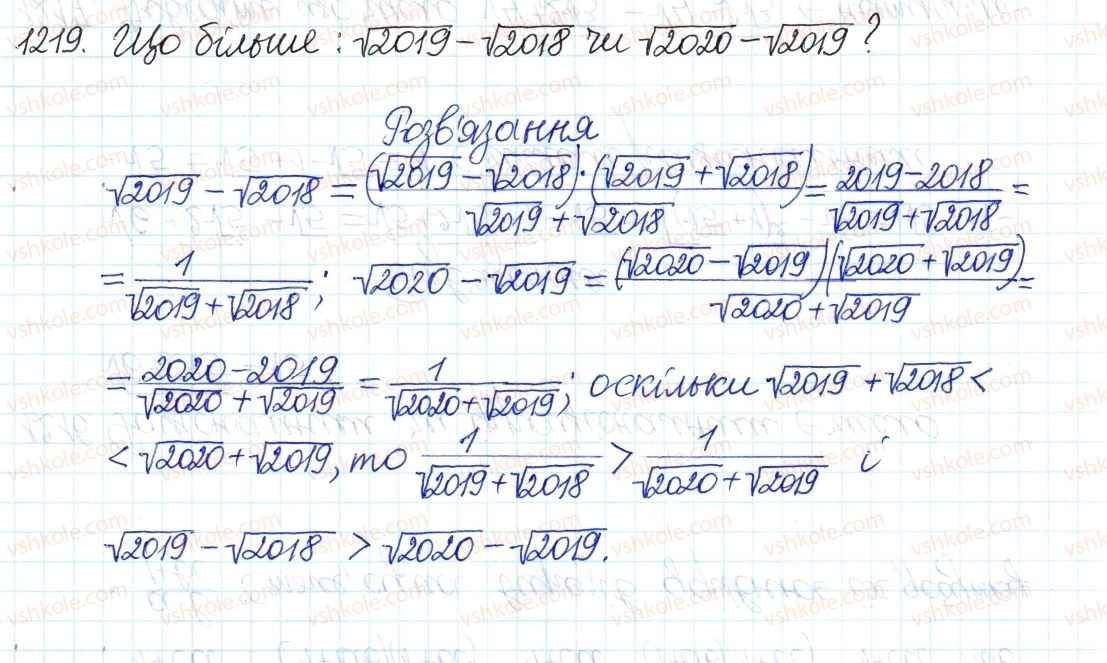 1219. Що більше: √2019 − √2018 чи √2020 − √2019?
Розв'язання
√2019 − √2018 = (√2019 − √2018)·(√2019 + √2018) / √2019 + √2018 = 2019 − 2018 / √2019 + √2018 =
= 1 / √2019 + √2018; √2020 − √2019 = (√2020 − √2019)(√2020 + √2019) / √2020 + √2019 =
= 2020 − 2019 / √2020 + √2019 = 1 / √2020 + √2019; оскільки √2019 + √2018 <
< √2020 + √2019, то 1 / √2019 + √2018 > 1 / √2020 + √2019 і
√2019 − √2018 > √2020 − √2019.
vshkole.com